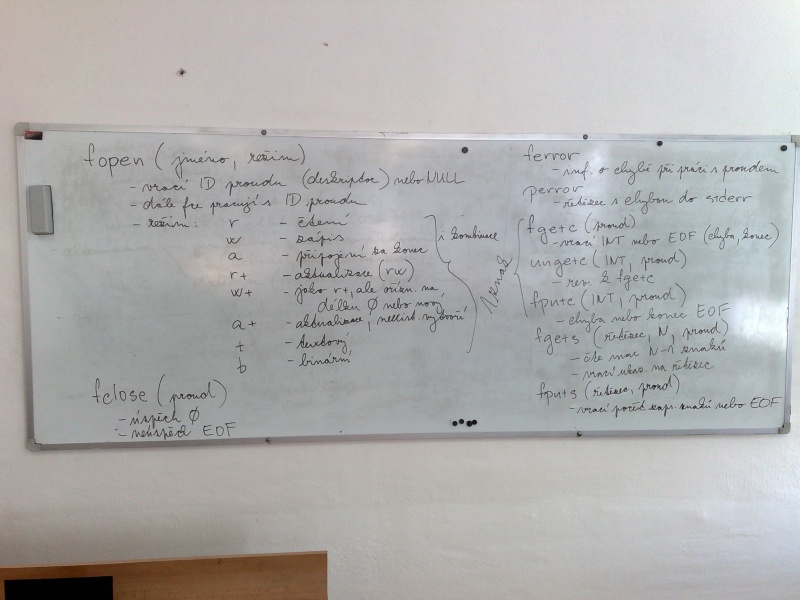 fopen (jméno, režim)
- vrací ID proudu (deskriptor) nebo NULL
- dále fce pracují s ID proudu
- režim: r - čtení
w - zápis
a - připojení za konec
r+ - aktualizace (rw)
w+ - jako r+, ale ořízn. na
délku 0 nebo nový
a+ - aktualizace, neexist. vytvoří
t - textový
b - binární
i kombinace
fclose (proud)
- úspěch 0
- neúspěch EOF
ferror
- inf. o chybě při práci s proudem
perror
- řetězec s chybou do stderr
1 znak
fgetc (proud)
- vrací INT nebo EOF (chyba, konec)
ungetc (INT, proud)
- rev. k fgetc
fputc (INT, proud)
- chyba nebo konec EOF
fgets (řetězec, N, proud)
- čte max N-1 znaků
- vrací ukaz. na řetězec
fputs (řetězec, proud)
- vrací počet zaps. znaků nebo EOF